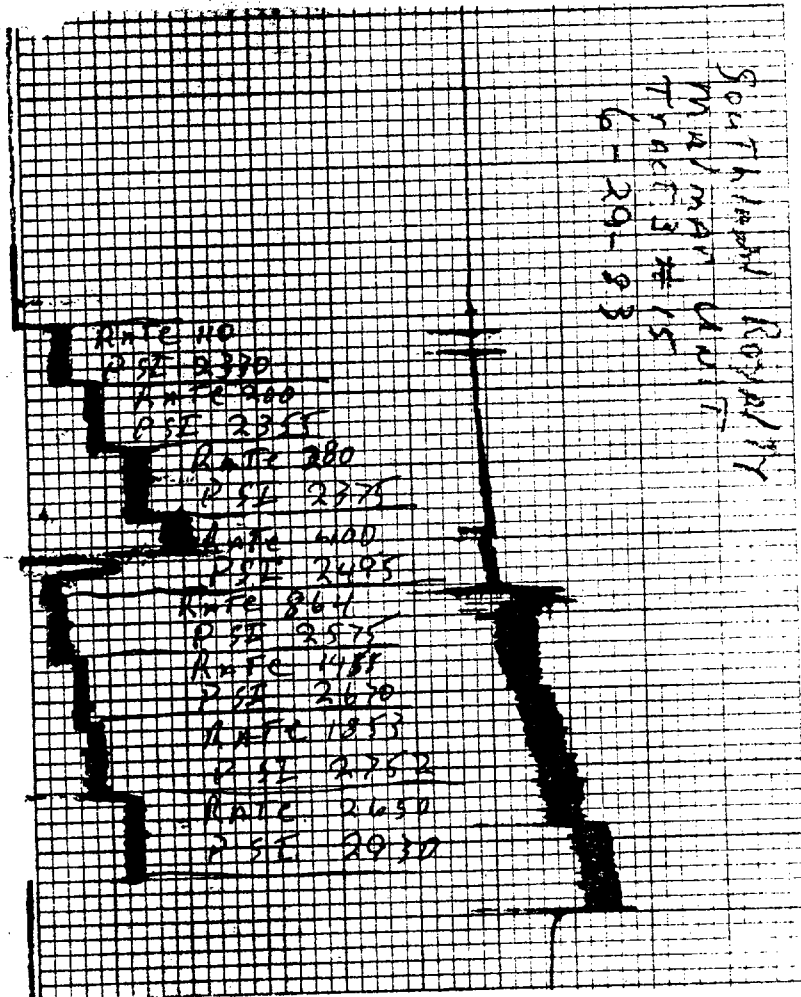 Southland Royalty
Malmar Unit
Tract 3 #15
6-29-83
Rate 110
PSI 2370
Rate 200
PSI 2355
Rate 280
PSI 2375
Rate 400
PSI 2495
Rate 864
PSI 2575
Rate
PSI 2670
Rate 1853
PSI 2752
Rate 2650
PSI 2930